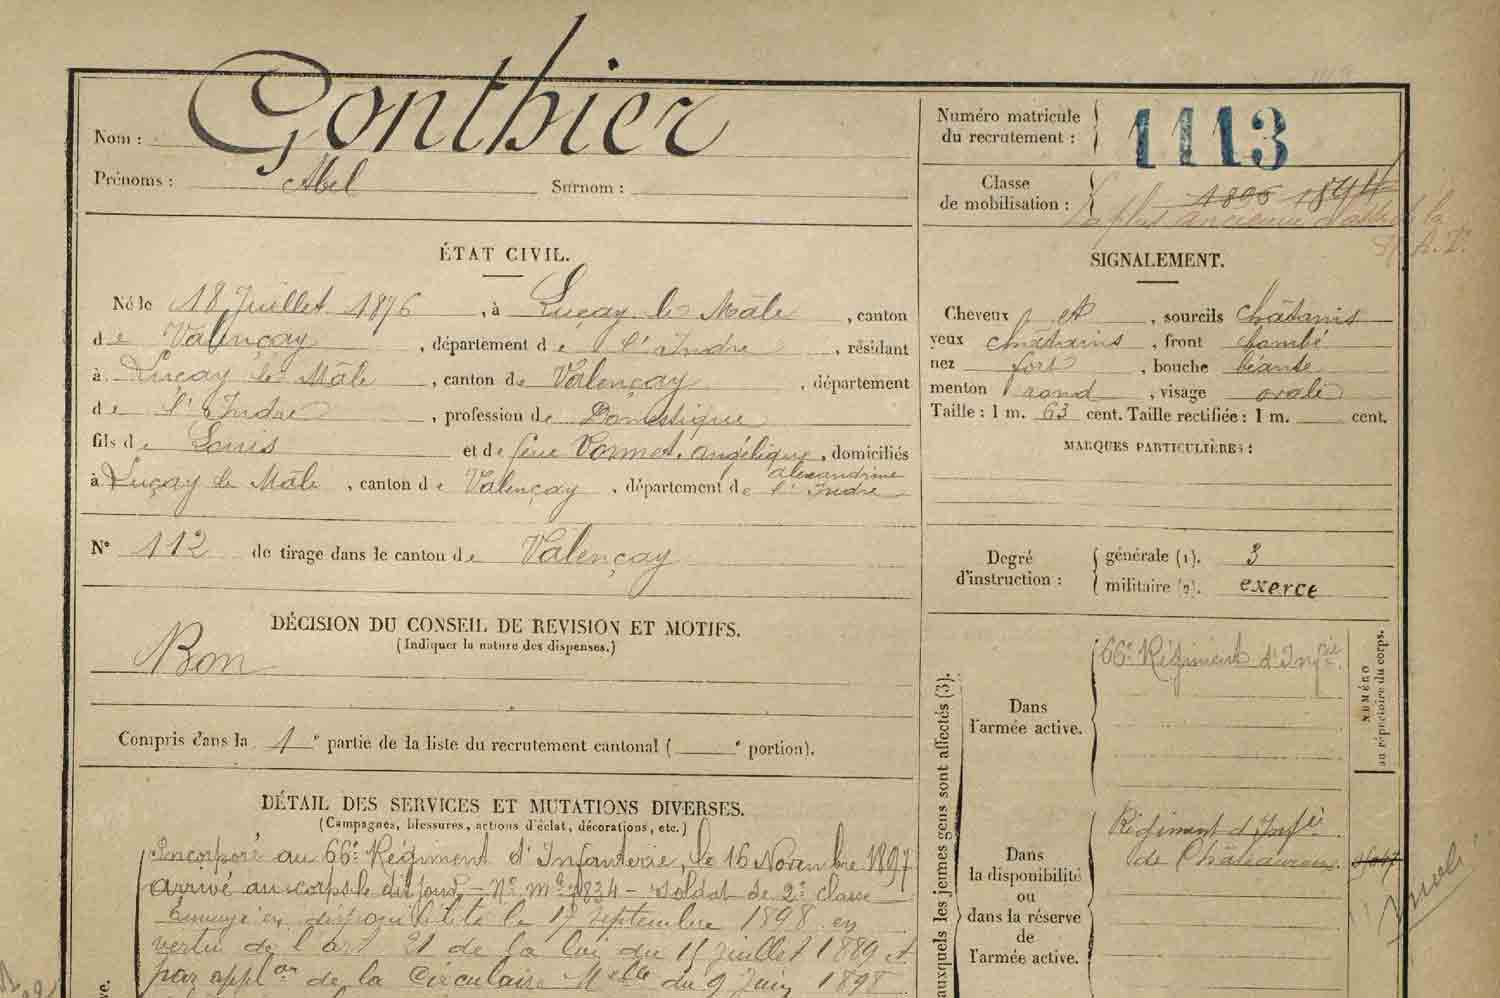 Nom : Gonthier
Prénoms : Abel Surnom :
Numéro matricule
du recrutement : 1113
Classe
de mobilisation : 1896
La plus ancienne classe de la
R. A. T.
ÉTAT CIVIL.
Né le 18 Juillet 1876, à Luçay le Mâle, canton
de Valençay, département de l'Indre, résidant
à Luçay le Mâle, canton de Valençay, département
de l'Indre, profession de Domestique
fils de Louis et de feue Vonnet, angélique, domiciliés
alexandrine
à Luçay le Mâle, canton de Valençay, département de l'Indre
N° 112 de tirage dans le canton de Valençay
DÉCISION DU CONSEIL DE REVISION ET MOTIFS.
(Indiquer la nature des dispenses.)
Bon
Compris dans la 1e partie de la liste du recrutement cantonal ( e portion).
DÉTAIL DES SERVICES ET MUTATIONS DIVERSES.
(Campagnes, blessures, actions d'éclat, décorations, etc.)
Incorporé au 66e Régiment d'Infanterie, le 16 Novembre 1897
arrivé au corps le dit jour, - No Mle 1834 - soldat de 2e classe
Envoyé en disponibilité le 17 septembre 1898 en
vertu de l'art 21 de la loi du 15 juillet 1889 et
par applon de la Circulaire Melle du 9 Juin 1898
SIGNALEMENT.
Cheveux et, sourcils châtains
yeux châtains, front bombé
nez fort, bouche béante
menton rond, visage ovale
Taille : 1 m. 63 cent. Taille rectifiée : 1 m. cent.
MARQUES PARTICULIÈRES :
Degré
d'instruction :
générale (1). 3
militaire (2). exercé
auxquels les jeunes gens sont affectés (3).
NUMÉRO
au répertoire du corps.
Dans
l'armée active.
66e Régiment d'Infrie
Dans
la disponibilité
ou
dans la réserve
de
l'armée active.
Régiment d'Infie
de Châteauroux